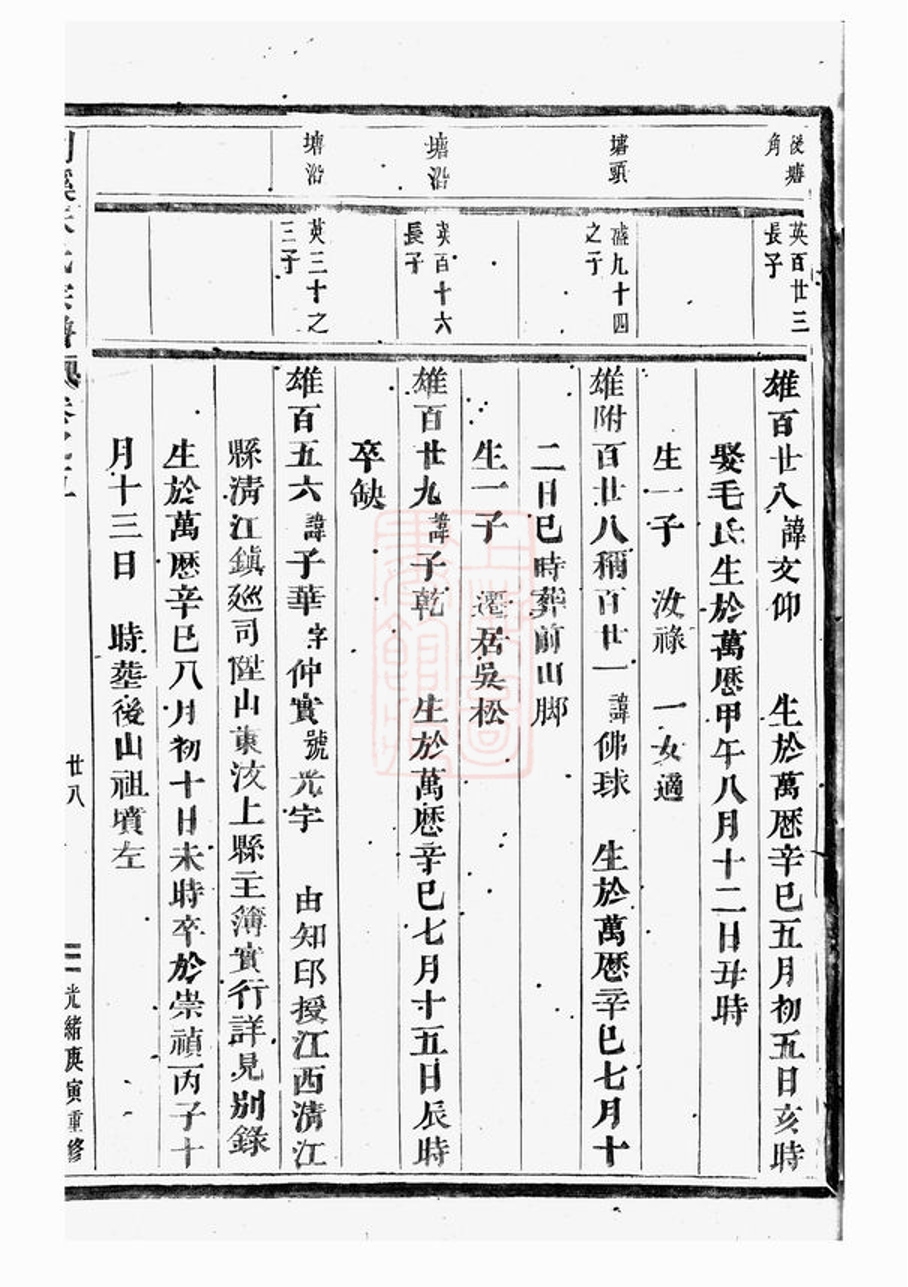 後塘
角
塘頭
塘沿
塘沿
英百廿三
長子
盛九十四
之子
英百十六
長子
英三十之
三子
雄百廿八諱文仰　生於萬厯辛巳五月初五日亥時
娶毛氏生於萬厯甲午八月十二日丑時
生一子　汝祿　一女適
雄附百廿八稱百廿一諱佛球　生於萬厯辛巳七月十
二日巳時葬前山脚
生一子　遷居吳松
雄百廿九諱子乾　生於萬厯辛巳七月十五日辰時
卒缺
雄百五六諱子華字仲實號光宇　由知印授江西清江
縣清江鎮廵司陞山東汶上縣主簿實行詳見别錄
生於萬厯辛巳八月初十日未時卒於崇禎丙子十
月十三日　時塟後山祖墳左
宗譜
卷之
廿八
光緒庚寅重修